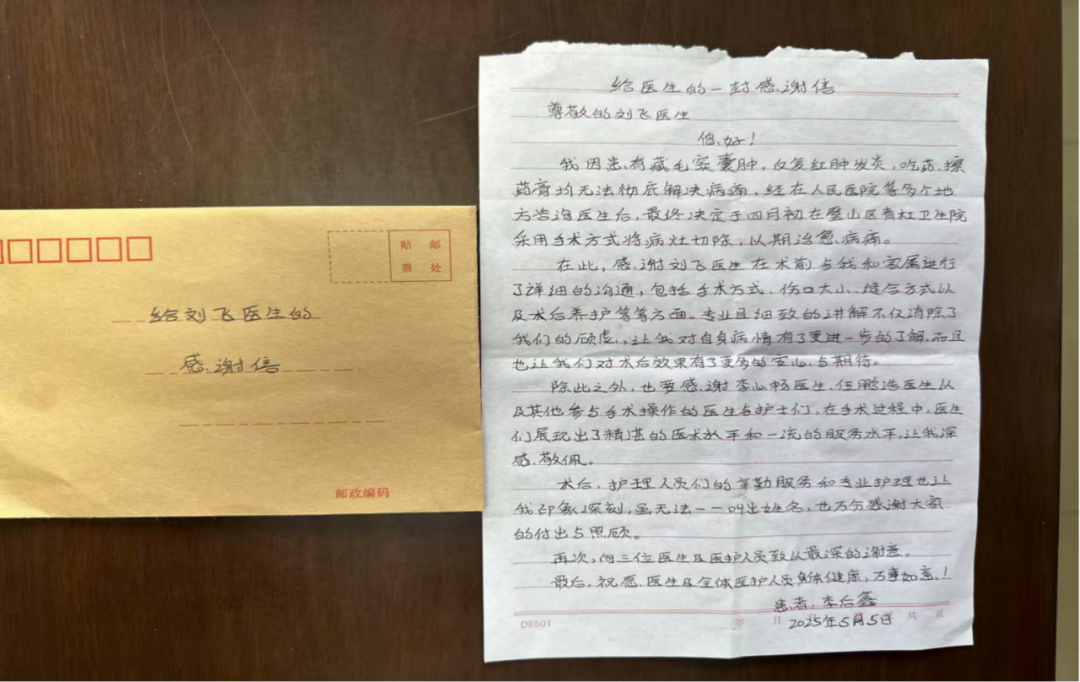 贴 邮
票 处
给刘飞医生的
感谢信
邮政编码
给医生的一封感谢信
尊敬的刘飞医生
您好！
我因患有藏毛窦囊肿，反复红肿发炎，吃药、擦
药膏均无法彻底解决病痛，经在人民医院等多个地
方咨询医生后，最终决定于四月初在璧山区青杠卫生院
采用手术方式将病灶切除，以期治愈病痛。
在此，感谢刘飞医生在术前与我和家属进行
了详细的沟通，包括手术方式、伤口大小、缝合方式以
及术后养护等等方面。专业且细致的讲解不仅消除了
我们的顾虑，让我对自身病情有了更进一步的了解，而且
也让我们对术后效果有了更多的安心与期待。
除此之外，也要感谢李心畅医生、任鹏浩医生以
及其他参与手术操作的医生与护士们，在手术过程中，医生
们展现出了精湛的医术水平和一流的服务水平，让我深
感敬佩。
术后，护理人员们的辛勤服务和专业护理也让
我印象深刻，虽无法一一叫出姓名，也万分感谢大家
的付出与照顾。
再次，向三位医生及医护人员致以最深的谢意。
最后，祝愿医生及全体医护人员身体健康，万事如意！
患者：李后鑫
D8501 年 月 日 第 页 共 页
2025年5月5日